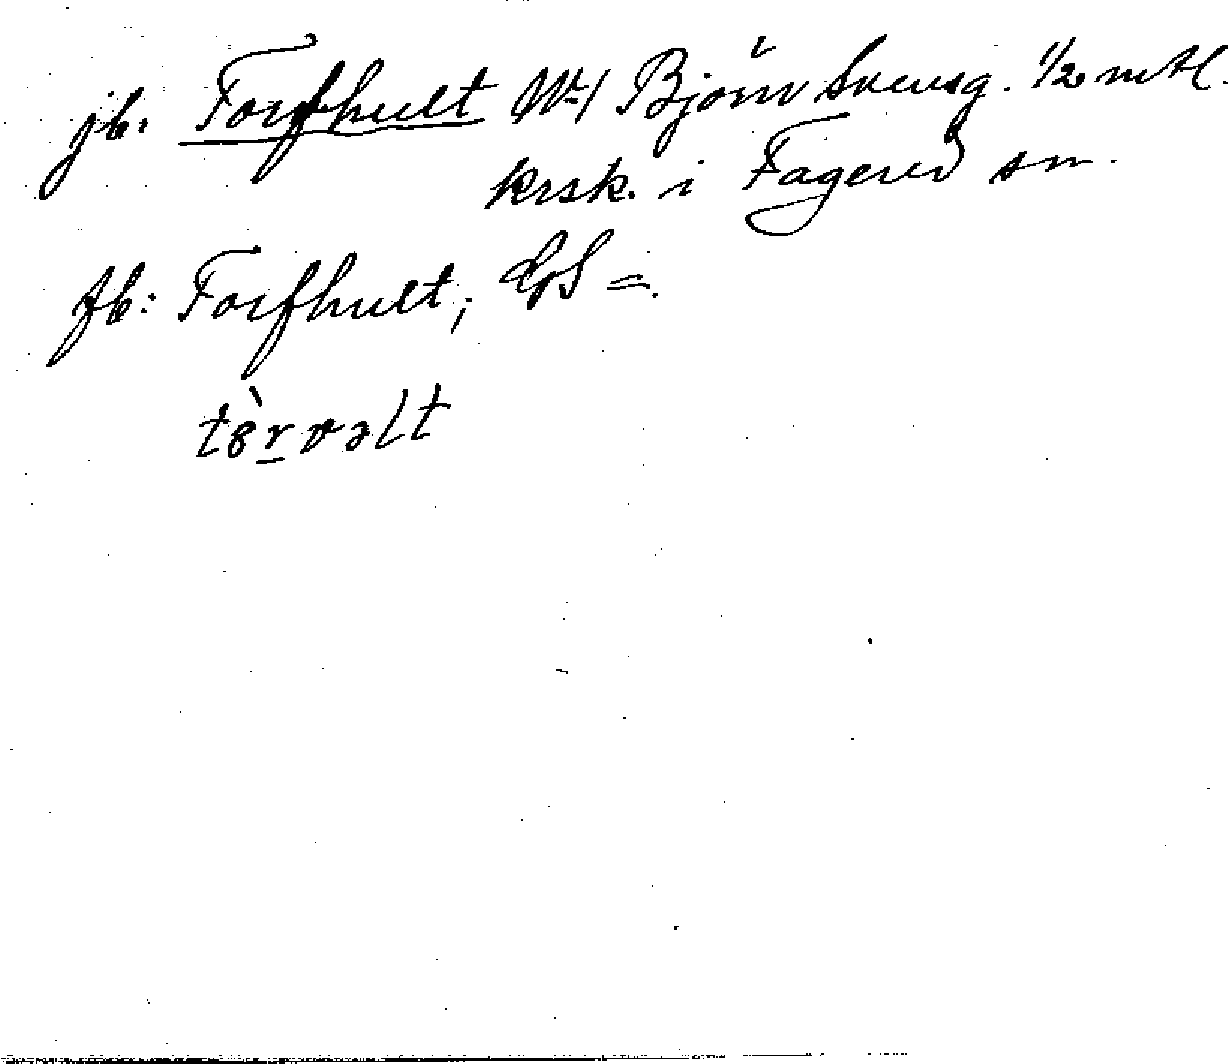 jb: Torfhult N:1 Björn Svensg. 1/2 mtl.
krsk. i Fagered sn.
fb: Torfhult, GS =.
tɞ̀r̲vəlt